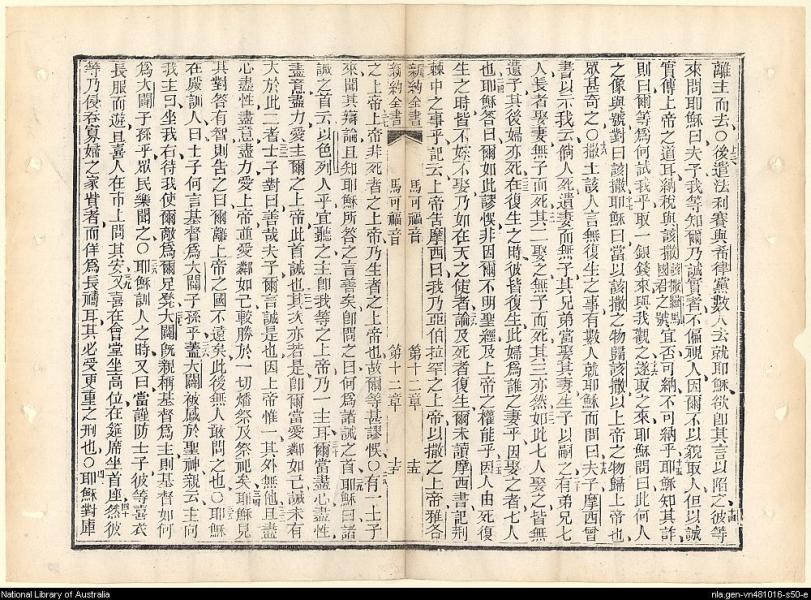 離主而去○後遣法利賽與希律黨數人去就耶穌欲即其言以陷之彼等
來問耶穌曰夫子我等知爾乃誠實者不偏視人因爾不以貌取人但以誠
實傳上帝之道耳納稅與該撒該撒羅馬國君之號宜否可納不可納乎耶穌知其詐
則曰爾等為何試我乎取一銀錢來與我觀之遂取之來耶穌問曰此何人
之像與號對曰該撒耶穌曰當以該撒之物歸該撒以上帝之物歸上帝也
眾甚奇之○撒土該人言無復生之事有數人就耶穌而問曰夫子摩西曾
書以示我云倘人死遺妻而無子其兄弟當娶其妻生子以嗣之有弟兄七
人長者娶妻無子而死其二娶之無子而死其三亦然如此七人娶之皆無
遺子其後婦亦死在復生之時彼皆復生此婦為誰之妻乎因娶之者七人
也耶穌答曰爾如此謬悞非因爾不明聖經及上帝之權能乎因人由死復
生之時皆不嫁不娶乃如在天之使者論及死者復生爾未讀摩西書記荆
棘中之事乎記云上帝告摩西曰我乃亞伯拉罕之上帝以撒之上帝雅各
新約全書 馬可福音 第十二章
新約全書 馬可福音 第十二章
之上帝上帝非死者之上帝乃生者之上帝也故爾等甚謬悞○有一士子
來聞其辯論且知耶穌所答之言善矣即問之曰何為諸誡之首耶穌曰諸
誡之首云以色列人乎宜聽之主即我等之上帝乃一主耳爾當盡心盡性
盡意盡力愛主爾之上帝此首誡也其次亦若是即爾當愛鄰如己誡未有
大於此二者士子對曰善哉夫子爾言誠是也因上帝惟一其外無他且盡
心盡性盡意盡力愛上帝並愛鄰如己較勝於一切燔祭及祭祀矣耶穌見
其對答有智則告之曰爾離上帝之國不遠矣此後無人敢問之也○耶穌
在殿訓人曰士子何言基督為大闢子孫乎蓋大闢被感於聖神親云主向
我主曰坐我右待我使爾敵為爾足凳大闢既親稱基督為主則基督如何
為大闢子孫乎眾民樂聞之○耶穌訓人之時又曰當謹防士子彼等喜衣
長服而遊且喜人在市上問其安又喜在會堂坐高位在筵席坐首座然彼
等乃侵吞寡婦之家貲者而佯為長禱耳其必受更重之刑也○耶穌對庫
National Library of Australia
nla.gen-vn481016-s50-e